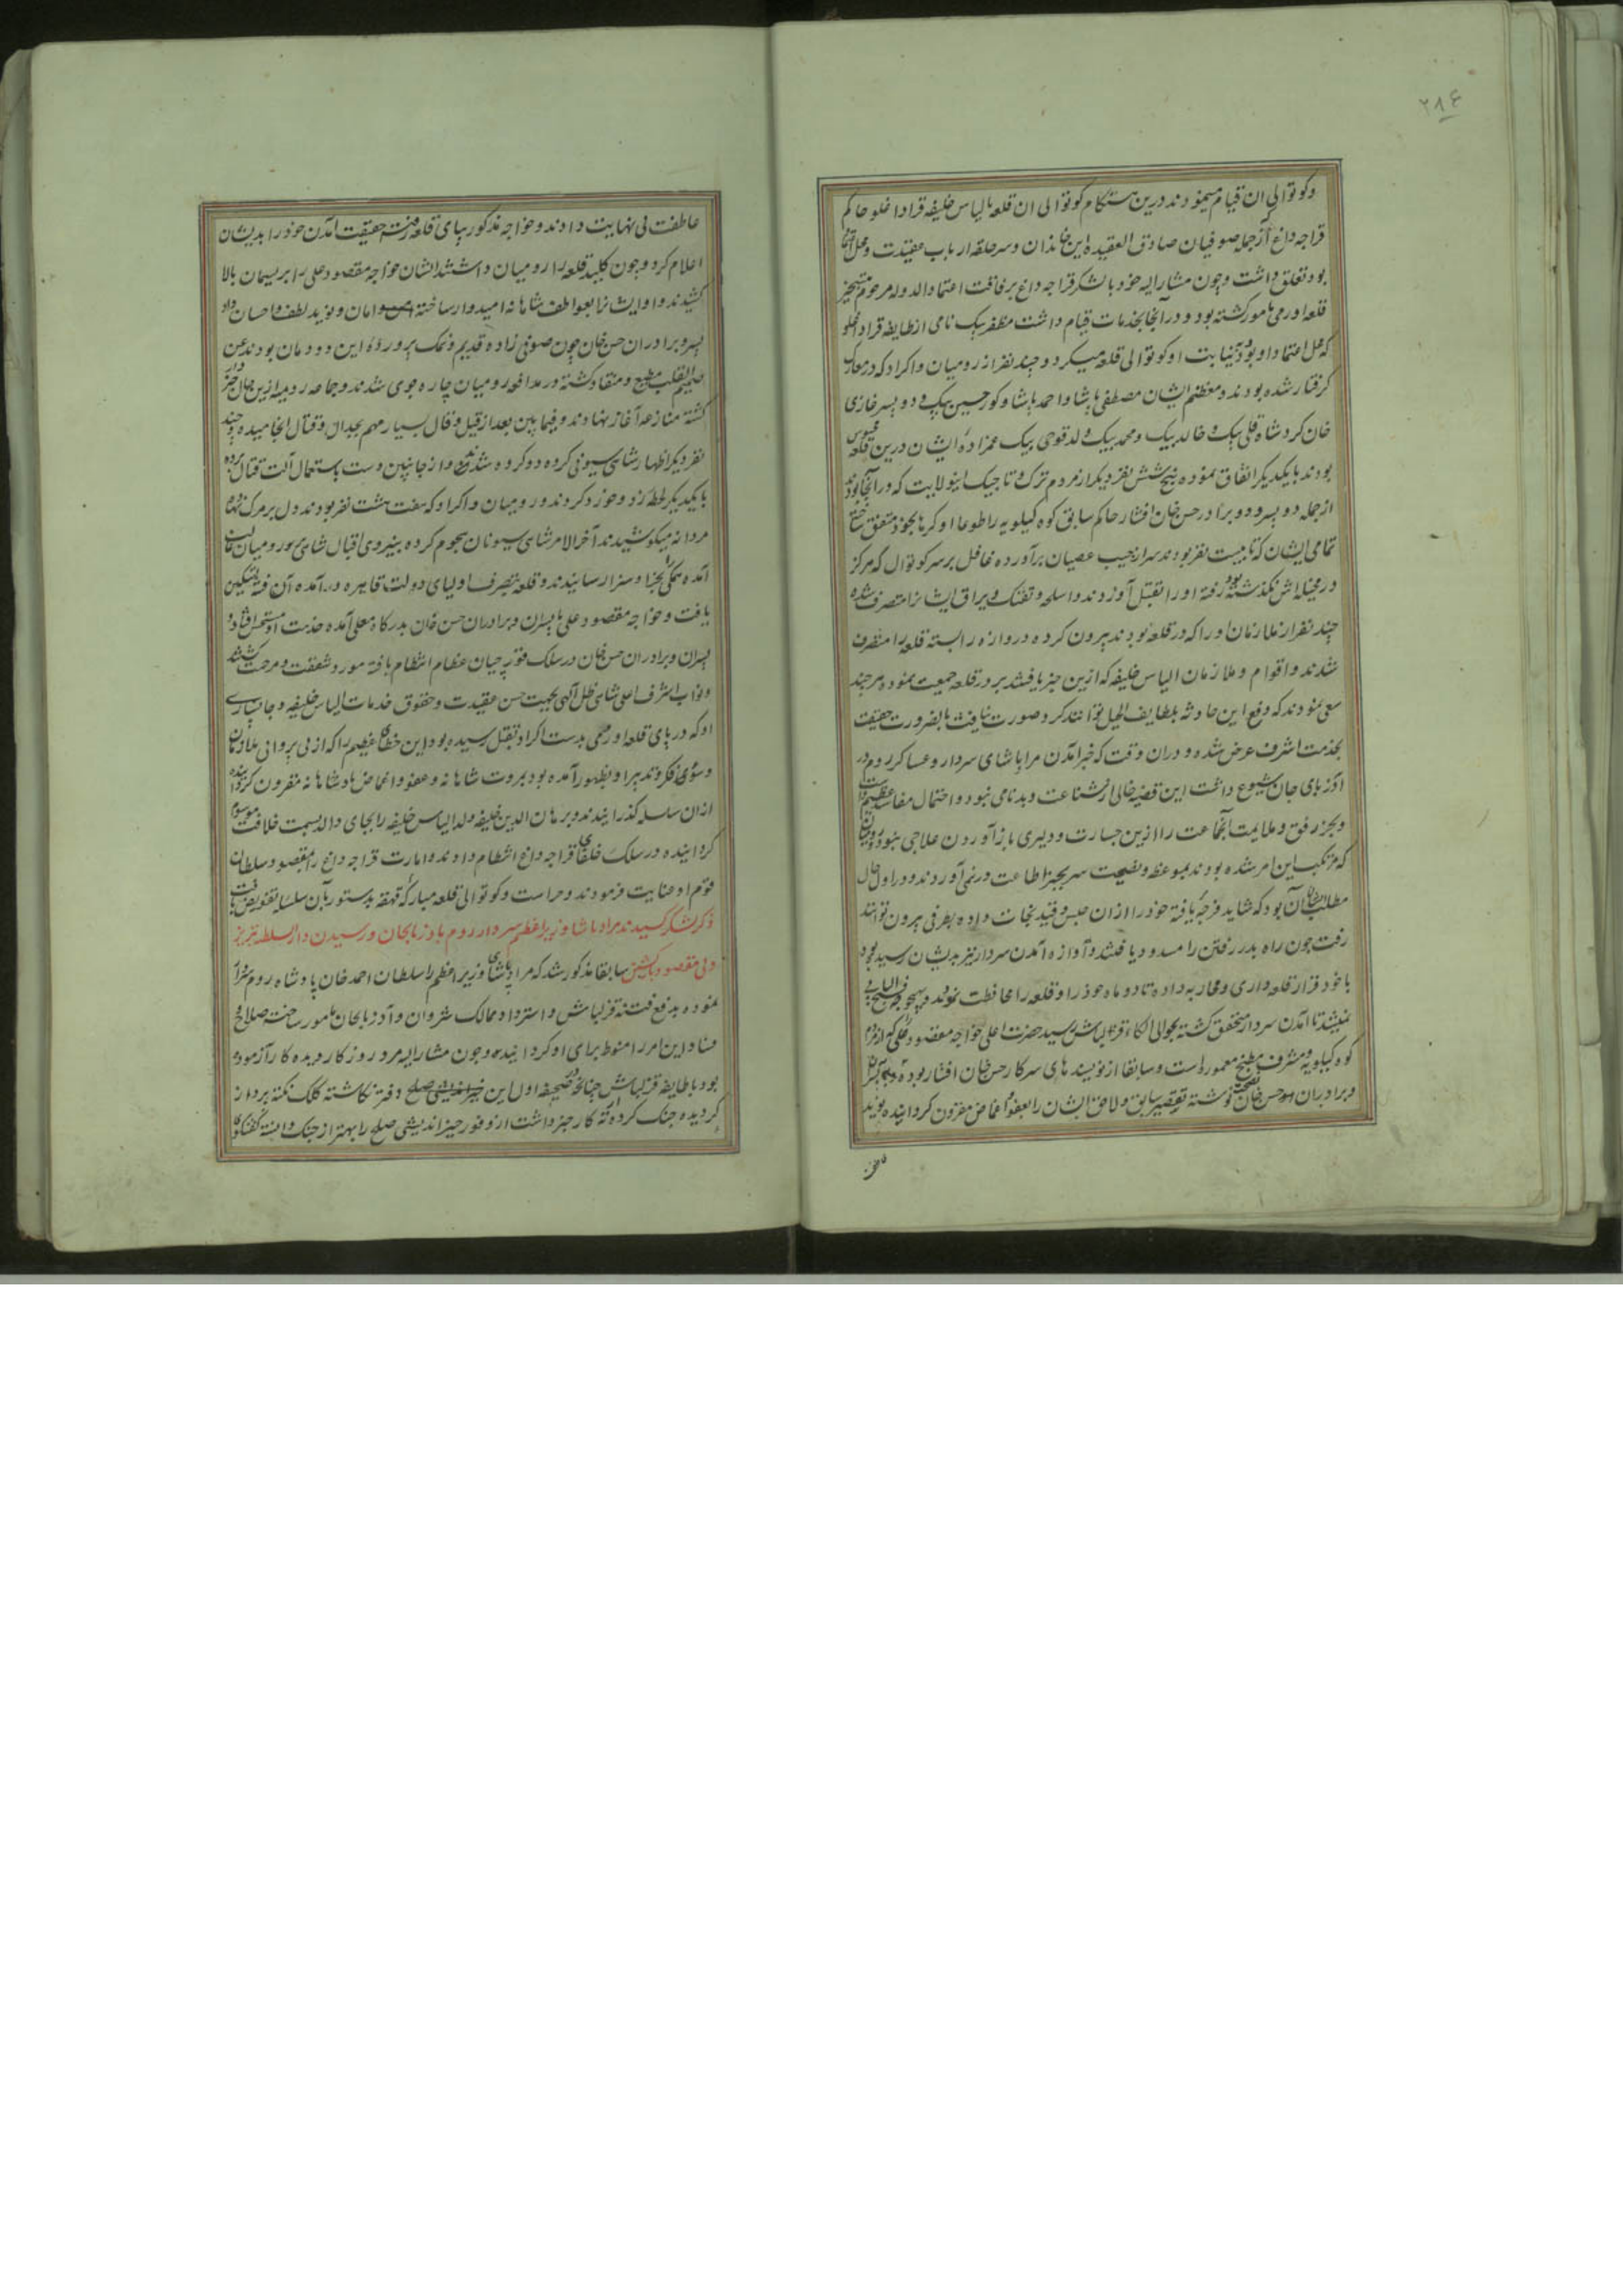 ۲۸۴
وکوتوالی ان قیام مینمودند درین هنکام کوتوالی ان قلعه بالیاس خلیفه قراداغلو حاکم
قراجه داغ که ازجمله صوفیان صادق العقیده این خاندان وسرحلقه ارباب عقیدت ومحل اعتماد
بود تعلق داشت وچون مشارالیه خود با لشکر قراجه داغ برفاقت اعتماد الدوله مرحوم بتسخیر
قلعه اورمی مامور کشته بود و در آنجا بخدمات قیام داشت مظفر بیک نامی از طایفه قراداغلو
که محل اعتماد او بود به نیابت او کوتوالی قلعه میکرد وچند نفر از رومیان واکراد که در معارک
کرفتار شده بودند ومعظم ایشان مصطفی پاشا واحمد پاشا وکور حسین بیک ودو پسر غازی
خان کرد شاه قلی بیک وخالد بیک ومحمد بیک ولد قوچی بیک عمزاده ایشان درین قلعه محبوس
بودند بایکدیکر اتفاق نموده پنج شش نفر دیکر از مردم ترک وتاجیک اینولایت که در آنجا بودند
ازجمله دو پسر و دو برادر حسن خان افشار حاکم سابق کوه کیلویه را طوعا او کرها بخود متفق ساخته
تمامی ایشان که تا بیست نفر بودند سر از جیب عصیان برآورده غافل برسر کوتوال که هرکز
در مخیله اش نکذشته بود رفته او را بقتل آوردند واسلحه وتفنک ویراق ایشانرا متصرف شده
چند نفر از ملازمان او را که در قلعه بودند بیرون کرده دروازه را بسته قلعه را متصرف
شدند واقوام وملازمان الیاس خلیفه که ازین خبر یافتند بر در قلعه جمعیت نموده هرچند
سعی نمودند که دفع این حادثه بلطایف الحیل توانند کرد صورت نیافت بالضرورت حقیقت
بخدمت اشرف عرض شده ودران وقت که خبر آمدن مراد پاشای سردار وعساکر روم در
آذربایجان شیوع داشت این قضیه خالی از شناعت وبدنامی نبود واحتمال مفاسد عظیم داشت
وبجز رفق وملایمت آنجماعت را ازین جسارت ودلیری بازآوردن علاجی نبود رومیان
که مرتکب این امر شده بودند بموعظه ونصیحت سر بچنبر اطاعت درنمی آوردند ودر اول حال
مطلب ایشان آن بود که شاید فرجه یافته خود را ازان حبس وقید نجات داده بطرفی بیرون توانند
رفت چون راه بدر رفتن را مسدود یافتند وآوازه آمدن سردار نیز بدیشان رسیده بود
باخود قرار قلعه داری ومحاربه داده تا دو ماه خود را وقلعه را محافظت نمودند وبهیچوجه
نمیشد تا آمدن سردار متحقق کشته بحوالی الکاء قزلباش رسید حضرت اعلی خواجه مقصود علی که از مردم
کوه کیلویه ومشرف مطبخ معموره است وسابقا از نویسندهای سرکار حسن خان افشار بوده
وبرادران حسن خان نوشته تقصیر سابق ولاحق ایشان را بعفو واغماض مقرون کردانیده نوید
عاطفت بی نهایت دادند وخواجه مذکور بپای قلعه رفته حقیقت آمدن خود را بدیشان
اعلام کرد وچون کلید قلعه را رومیان داشتند ایشان خواجه مقصود علی را بریسمان بالا
کشیدند واو ایشانرا بعواطف شاهانه امیدوار ساخته امان ونوید لطف واحسان داد
پسر وبرادران حسن خان چون صوفی زاده قدیم ونمک پرورده این دودمان بودند عن
صمیم القلب مطیع ومنقاد کشته در مدافعه رومیان چاره جوی شدند وجماعه رومیه ازین حال خبردار
کشته منازعه آغاز نهادند وفیمابین بعد از قیل وقال بسیار مهم بجدال وقتال انجامیده وچند
نفر دیکر اظهار شاهی سیونی کرده دو کروه شدند واز جانبین دست باستعمال آلت قتال برده
بایکدیکر زد وخورد کردند ورومیان واکراد که هفت هشت نفر بودند دل برمرک نهاده
مردانه میکوشیدند آخرالامر شاهی سیونان هجوم کرده بنیروی اقبال شاهی بر رومیان غالب
آمده همکی را بجزا وسزا رسانیدند وقلعه بتصرف اولیای دولت قاهره درآمده آن فتنه تسکین
یافت وخواجه مقصود علی با پسران وبرادران حسن خان بدرکاه معلی آمده خدمت او مستحسن افتاد و
پسران وبرادران حسن خان در سلک قورچیان عظام انتظام یافته مورد شفقت ومرحمت کشتند
ونواب اشرف اعلی شاهی ظل آلهی بجهت حسن عقیدت وحقوق خدمات الیاس خلیفه وجانسپاری
او که در پای قلعه اورمی بدست اکراد بقتل رسیده بود این خطای عظیم را که از بی پروائی ملازمان
وسوی فکر وتدبیر او بظهور آمده بود بمروت شاهانه وعفو واغماض پادشاهانه مقرون کردانیده
ازان سلسله کذرانیدند وبرهان الدین خلیفه ولد الیاس خلیفه را بجای والد بسمت خلافت موسوم
کردانیده در سلک خلفای قراجه داغ انتظام دادند وامارت قراجه داغ را بمقصود سلطان
قوم او عنایت فرمودند وحراست وکوتوالی قلعه مبارکه قهقهه بدستور بآن سلسله تفویض یافت
ذکر لشکر کشیدن مراد پاشا وزیر اعظم سردار روم باذربایجان ورسیدن دارالسلطنه تبریز
وبی مقصود بازکشتن سابقا مذکور شد که مراد پاشای وزیر اعظم را سلطان احمد خان پادشاه روم سردار
نموده بدفع فتنه قزلباش واسترداد ممالک شروان وآذربایجان مامور ساخت صلاح و
فساد این امر را منوط برای او کردانیده وچون مشارالیه مرد روزکار دیده کار آزموده
بود با طایفه قزلباش چنانچه در صحیفه اول این دفتر نکاشته کلک نکته پرداز
کردیده جنک کرده از کار خبر داشت از وفور خیراندیشی صلح را بهتر از جنک دانسته کفتکوی